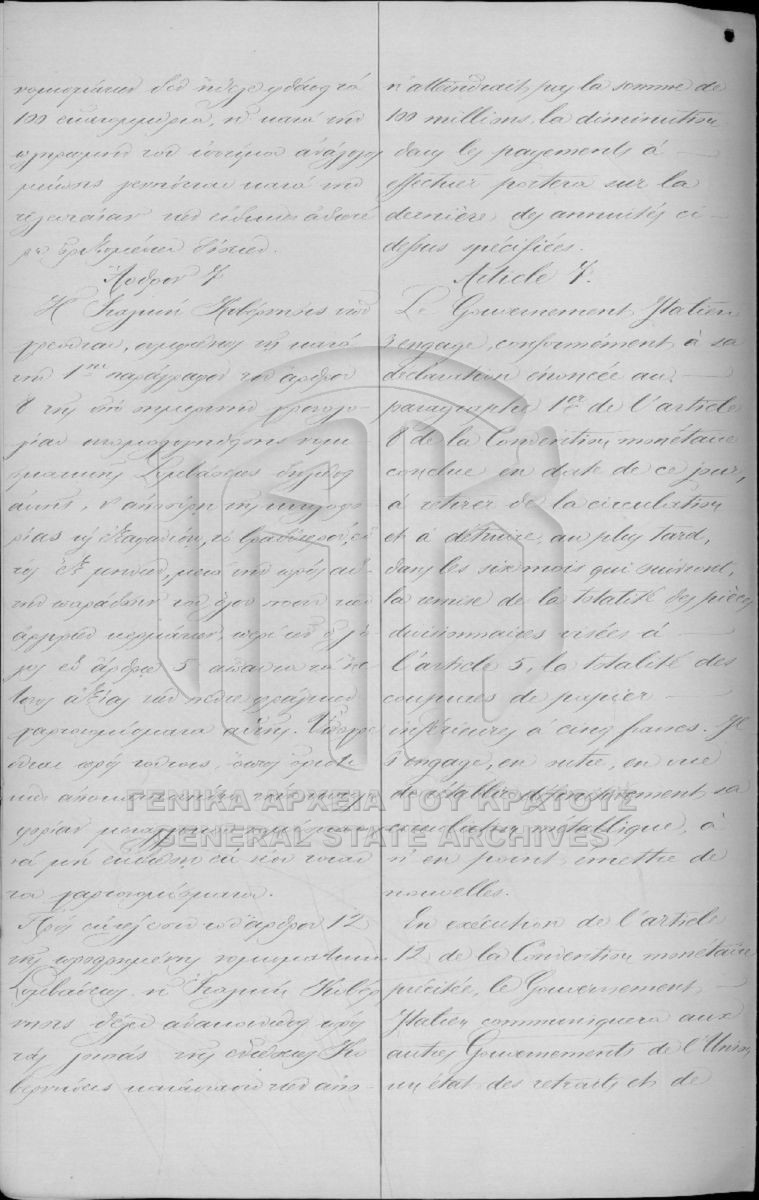 νομισμάτων δεν ήθελε φθάσει τα
100 εκατομμύρια, η κατά την
πληρωμήν του
μείωσις γενήσεται κατά την
τελευταίαν των
Άρθρον 7
Η Ιταλική Κυβέρνησις
χρεούται, συμφώνως τη κατά
την 1ην παράγραφον του άρθρου
8 της υπό σημερινήν χρονολο-
γίαν συνομολογηθείσης νομι-
σματικής Συμβάσεως δηλώσει
αυτής, ν' αποσύρη της κυκλοφο-
ρίας και το βραδύτερον, εν-
τός εξ μηνών, μετά την προς αυ-
την παράδοσιν του όλου ποσού των
αργυρών κερμάτων, περί ων ο λό-
γος εν άρθρω 5 άπαντα τα
αξίας των πέντε φράγκων
χαρτονομίσματα αυτής. Υποχρε-
ούται προς τούτοις, όπως οριστι-
κώς
να μη εκδώση εκ νέου τοιαύ-
τα χαρτονομίσματα.
Προς εκτέλεσιν του άρθρου 12
της προρρηθείσης νομισματικής
Συμβάσεως, η Ιταλική Κυβέρ-
νησις θέλει ανακοινώσει προς
τας λοιπάς της Ενώσεως Κυ-
βερνήσεις κατάστασιν των απο-
n'atteindrait pas la somme de
100 millions, la diminution
dans les payements à
effectuer portera sur la
dernière des annuités ci-
dessus spécifiées.
Article 7.
Le Gouvernement Italien
s'engage, conformément à sa
déclaration énoncée au
paragraphe 1er de l'article
8 de la Convention monétaire
conclue en date de ce jour,
à retirer de la circulation
et à détruire, au plus tard,
dans les six mois qui suivront,
la remise de la totalité des pièces
divisionnaires visées à
l'article 5, la totalité des
coupures de papier
inférieures à cinq francs. Il
s'engage, en outre, en vue
de rétablir définitivement sa
circulation métallique, à
n'en point émettre de
nouvelles.
En exécution de l'article
12 de la Convention monétaire
précitée, le Gouvernement
Italien communiquera aux
autres Gouvernements de l'Union
un état des retraits et de
ΓΕΝΙΚΑ ΑΡΧΕΙΑ ΤΟΥ ΚΡΑΤΟΥΣ
GENERAL STATE ARCHIVES